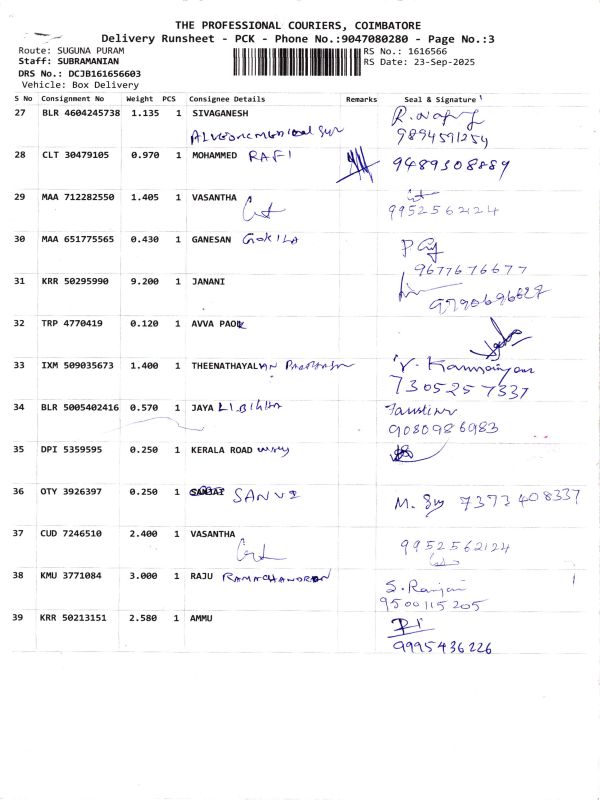 THE PROFESSIONAL COURIERS, COIMBATORE
Delivery Runsheet - PCK - Phone No.:9047080280 - Page No.:3
Route: SUGUNA PURAM RS No.: 1616566
Staff: SUBRAMANIAN RS Date: 23-Sep-2025
DRS No.: DCJB161656603
Vehicle: Box Delivery
S No Consignment No Weight PCS Consignee Details Remarks Seal & Signature
27 BLR 4604245738 1.135 1 SIVAGANESH
9894591254
28 CLT 30479105 0.970 1 MOHAMMED RAFI 9489308889
29 MAA 712282550 1.405 1 VASANTHA
9952562124
30 MAA 651775565 0.430 1 GANESAN GOKILA
9677676677
31 KRR 50295990 9.200 1 JANANI
32 TRP 4770419 0.120 1 AVVA PAOL
33 IXM 509035673 1.400 1 THEENATHAYALAN
7305257337
34 BLR 5005402416 0.570 1 JAYA
9080986983
35 DPI 5359595 0.250 1 KERALA ROAD
36 OTY 3926397 0.250 1 SANVI 7373408337
37 CUD 7246510 2.400 1 VASANTHA 9952562124
38 KMU 3771084 3.000 1 RAJU RAMACHANDRAN S. Ranjani
9500115205
39 KRR 50213151 2.580 1 AMMU
9995436226